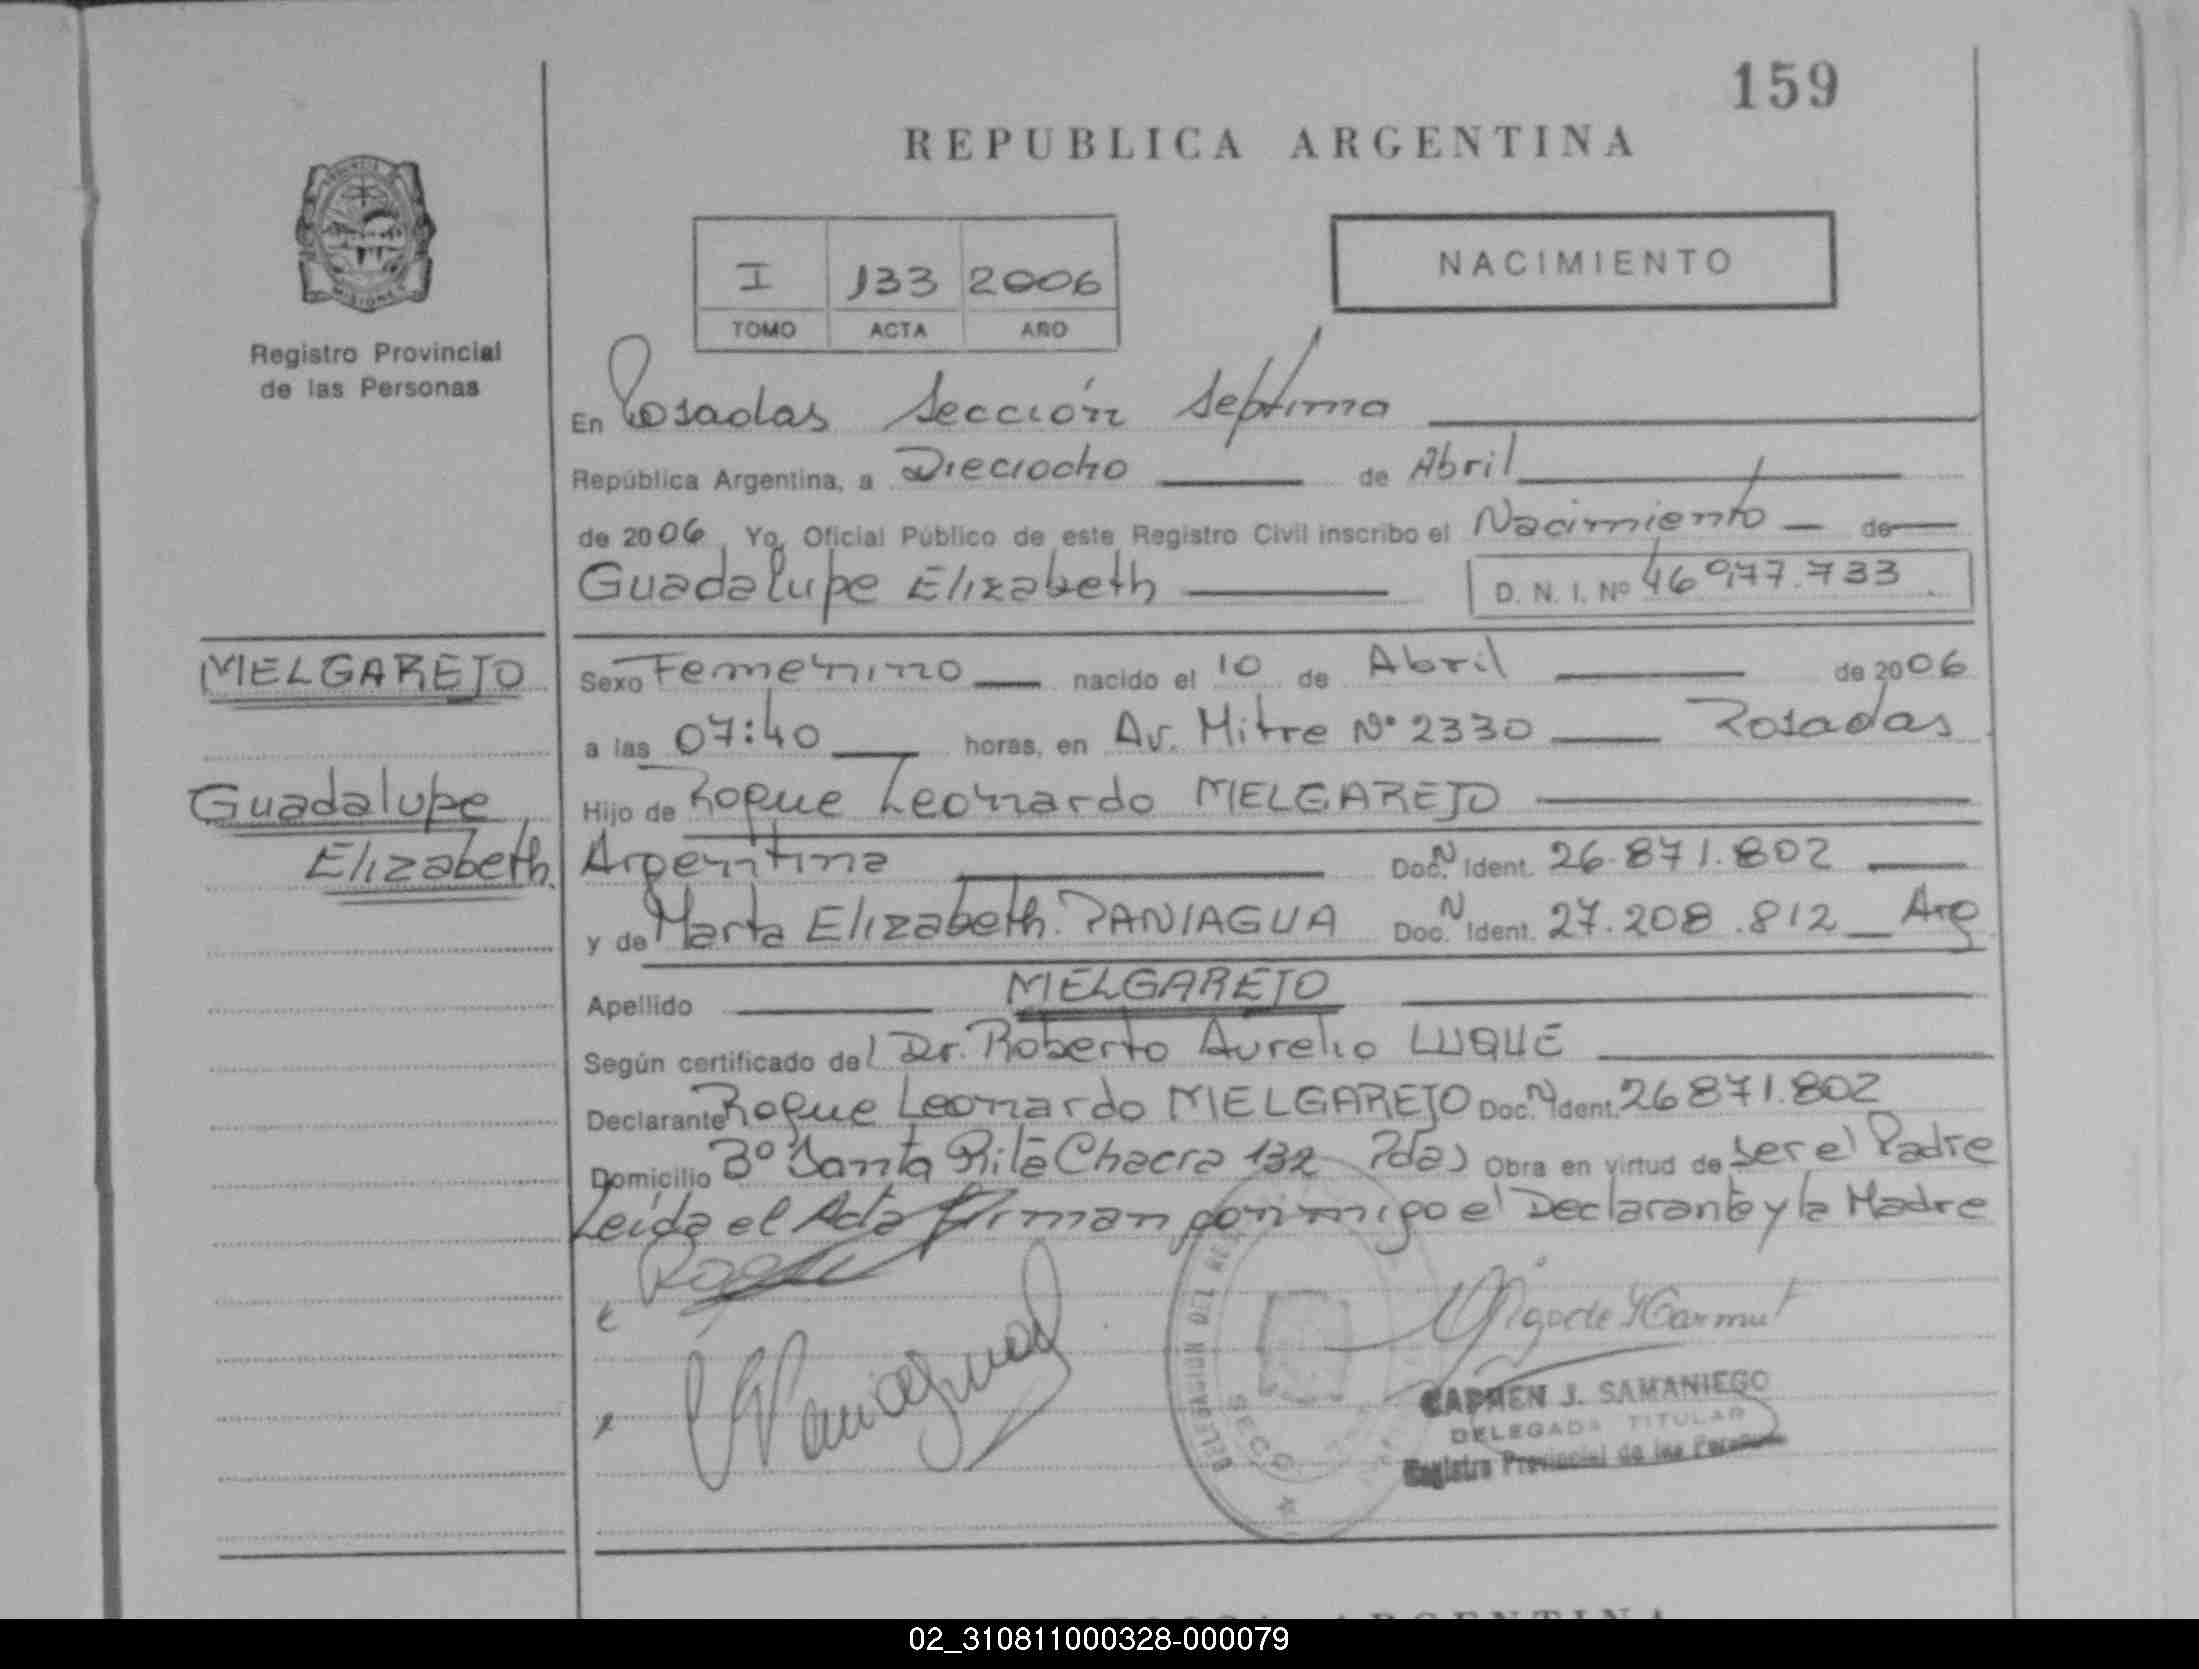 159
REPUBLICA ARGENTINA
MISIONES
Registro Provincial
de las Personas
I 133 2006
TOMO ACTA AÑO
NACIMIENTO
En Posadas Sección Septima
República Argentina, a Dieciocho de Abril
de 2006, Yo, Oficial Público de este Registro Civil inscribo el Nacimiento de
Guadalupe Elizabeth D. N. I. Nº 46.977.733
MELGAREJO
Sexo Femenino nacido el 10 de Abril de 2006
a las 07:40 horas, en Av. Mitre Nº 2330 Posadas
Guadalupe
Elizabeth.
Hijo de Roque Leonardo MELGAREJO
Argentina Doc. N Ident. 26.871.802
y de Marta Elizabeth. PANIAGUA Doc. N Ident. 27.208.812 Arg
Apellido MELGAREJO
Según certificado del Dr. Roberto Aurelio LUQUE
Declarante Roque Leonardo MELGAREJO Doc. N Ident. 26871.802
Domicilio Bº Santa Rita Chacra 132 Pdas Obra en virtud de ser el Padre
Leida el Acta firman conmigo el Declarante y la Madre
Paniagua
CARMEN J. SAMANIEGO
DELEGADA TITULAR
Registro Provincial de las Personas
02_310811000328-000079